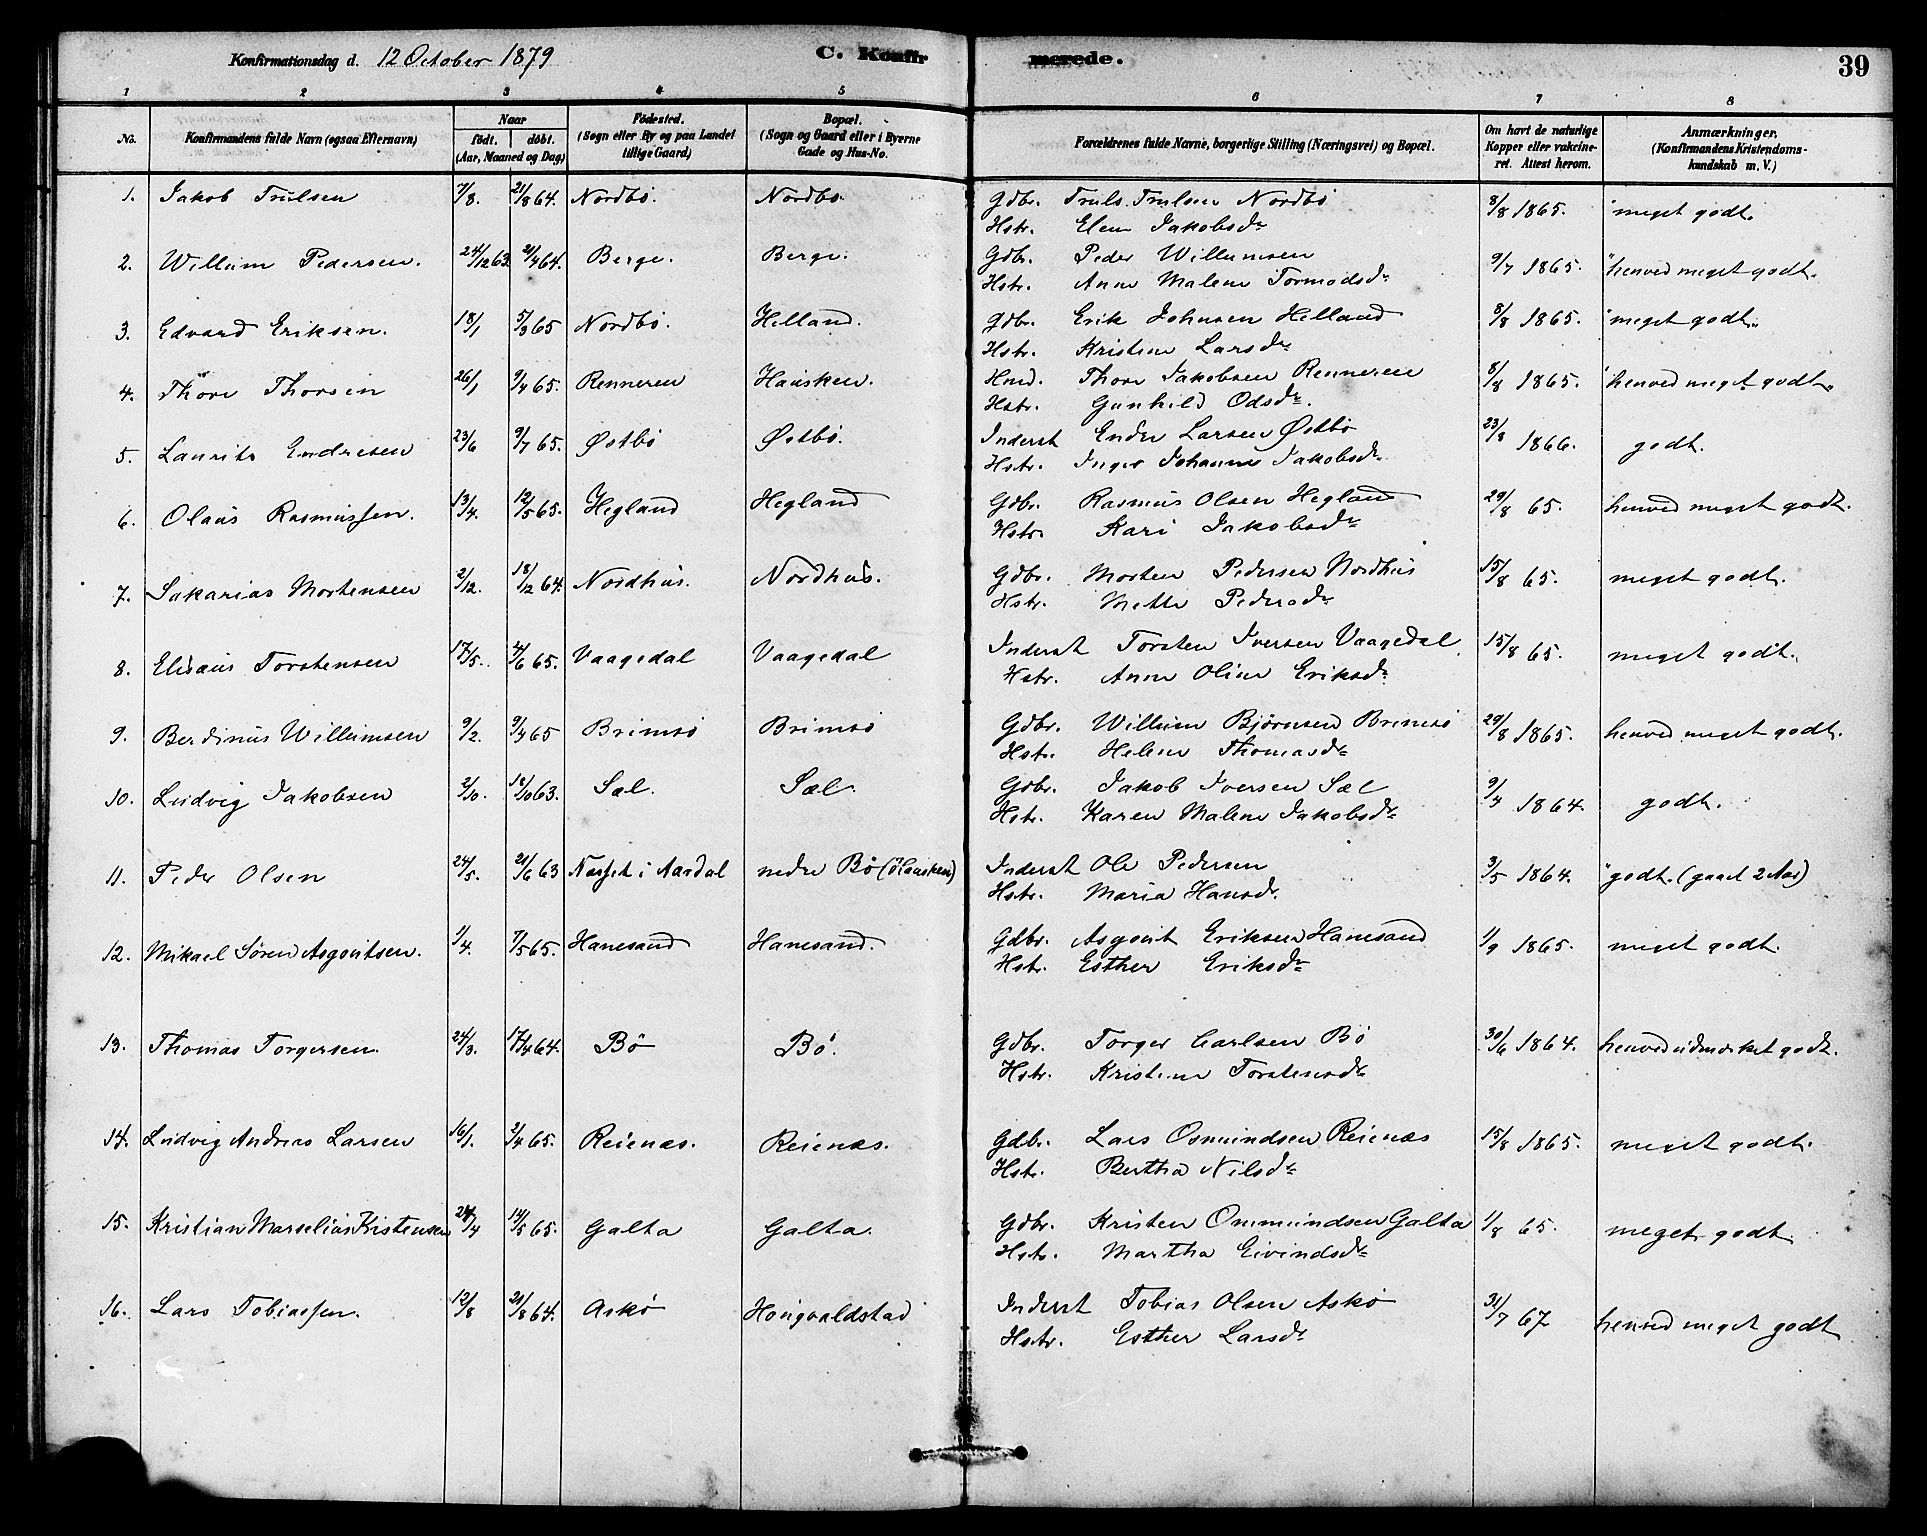 Konfirmationsdag d. 12 October 1879 C. Konfirmerede. 39
1 2 3 4 5 6 7 8
No. Konfirmandens fulde Navn (ogsaa Efternavn) Naar født. døbt. (Aar, Maaned og Dag) Fødested. (Sogn eller By og paa Landet tillige Gaard) Bopæl. (Sogn og Gaard eller i Byerne Gade og Hus-No. Forældrenes fulde Navne, borgerlige Stilling (Næringsvei) og Bopæl. Om havt de naturlige Kopper eller vaccineret. Attest herom. Anmærkninger. (Konfirmandens Kristendomskundskab m. V.)
1. Jakob Trulsen 7/8. 21/8 64. Nordbö. Nordbö. Gdbr. Truls Trulsen Nordbö 8/8 1865. meget godt.
Hstr. Elen Jakobsdr
2. Willum Pedersen. 24/12 63. 2/4 64. Berge. Berge. Gdbr. Peder Willumsen 9/7 1865. henved meget godt.
Hstr. Anne Malene Tormodsdr
3. Edvard Eriksen. 18/1 5/3 65 Nordbö. Helland. Gdbr. Erik Johnsen Helland 8/8 1865. meget godt.
Hstr. Kristine Larsdr
4. Thore Thorsen 26/1 9/4 65. Renneren Hausken. Hmd. Thore Jakobsen Renneren 8/8 1865. henved meget godt.
Hstr. Gunhild Odsdr.
5. Laurits Endresen 23/6 9/7 65. Østbö Østbö. Inderst Endre Larsen Østbö 23/8 1866. godt.
Hstr. Inger Johanne Jakobsdr
6. Olaus Rasmussen. 13/4. 12/5 65. Hegland Hegland Gdbr. Rasmus Olsen Hegland 29/8 65. henved meget godt.
Hstr. Kari Jakobsdr
7. Sakarias Mortensen 2/12. 18/12 64. Nordhus. Nordhus. Gdbr. Morten Pedersen Nordhus 15/8 65. meget godt.
Hstr. Mette Pedersdr
8. Elisaus Torstensen 17/5. 4/6 65. Vaagedal Vaagedal Inderst Torsten Iversen Vaagedal. 15/8 65. meget godt.
Hstr. Anne Oline Eriksdr
9. Berdinus Willumsen 9/2. 9/4 65 Brimsö Brimsö Gdbr. Willum Bjørnsen Brimsö 29/8 1865. henved meget godt.
Hstr. Helene Thomasdr
10. Ludvig Jakobsen 2/10. 18/10 63. Sæl. Sæl. Gdbr. Jakob Iversen Sæl 9/7 1864 godt.
Hstr. Karen Malene Jakobsdr
11. Peder Olsen 24/5. 21/6 63 Nesset i Aardal nedre Bö (Hausken) Inderst Ole Pedersen 3/5 1864. godt. (gaaet 2 Aar)
Hstr. Maria Hansdr.
12. Mikael Sören Asgoutsen. 1/4. 7/5 65. Hanesand Hanesand. Gdbr. Asgout Eriksen Hanesand 1/9 1865. meget godt.
Hstr. Esther Eriksdr
13. Thomas Torgersen. 24/3. 17/4 64. Bö Bö. Gdbr. Torger Carlsen Bö 30/6 1864. henved udmærket godt.
Hstr. Kristine Torstensdr
14. Ludvig Andreas Larsen 16/1. 2/4 65. Reienæs. Reienæs. Gdb. Lars Osmundsen Reienæs 15/8 1865. meget godt.
Hstr. Bertha Nilsdr
15. Kristian Marselius Kristensen 24/4 14/5 65. Galta Galta. Gdbr. Kristen Ommundsen Galta 1/8 65. meget godt.
Hstr. Martha Eivindsdr
16. Lars Tobiassen. 12/8 21/8 64. Askö Hougvaldstad Inderst Tobias Olsen Askö 31/7 67 henved meget godt
Hstr. Esther Larsdr